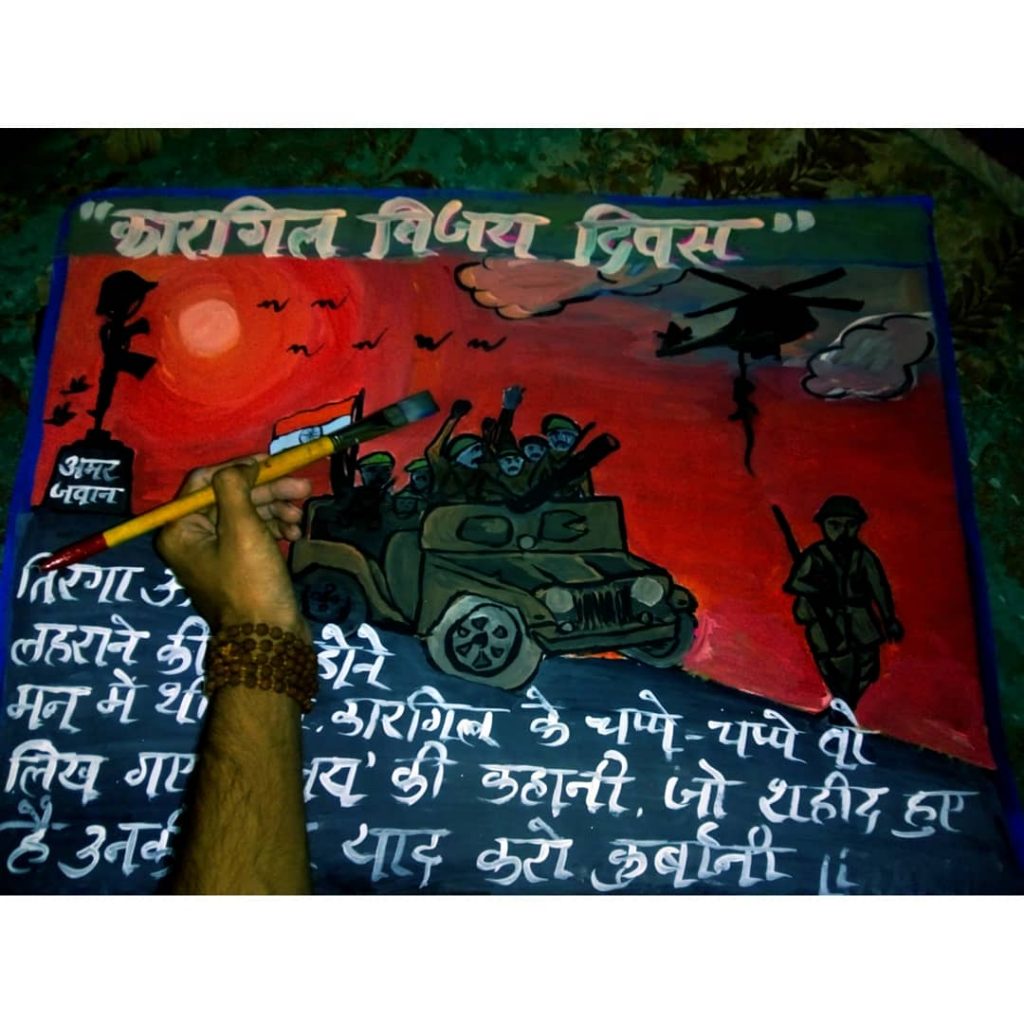 "कारगिल विजय दिवस"
अमर
जवान
तिरगा
लहराने की
मन में थी कारगिल के चप्पे-चप्पे वो
लिख गए की कहानी, जो शहीद हुए
है याद करो कुर्बानी ॥